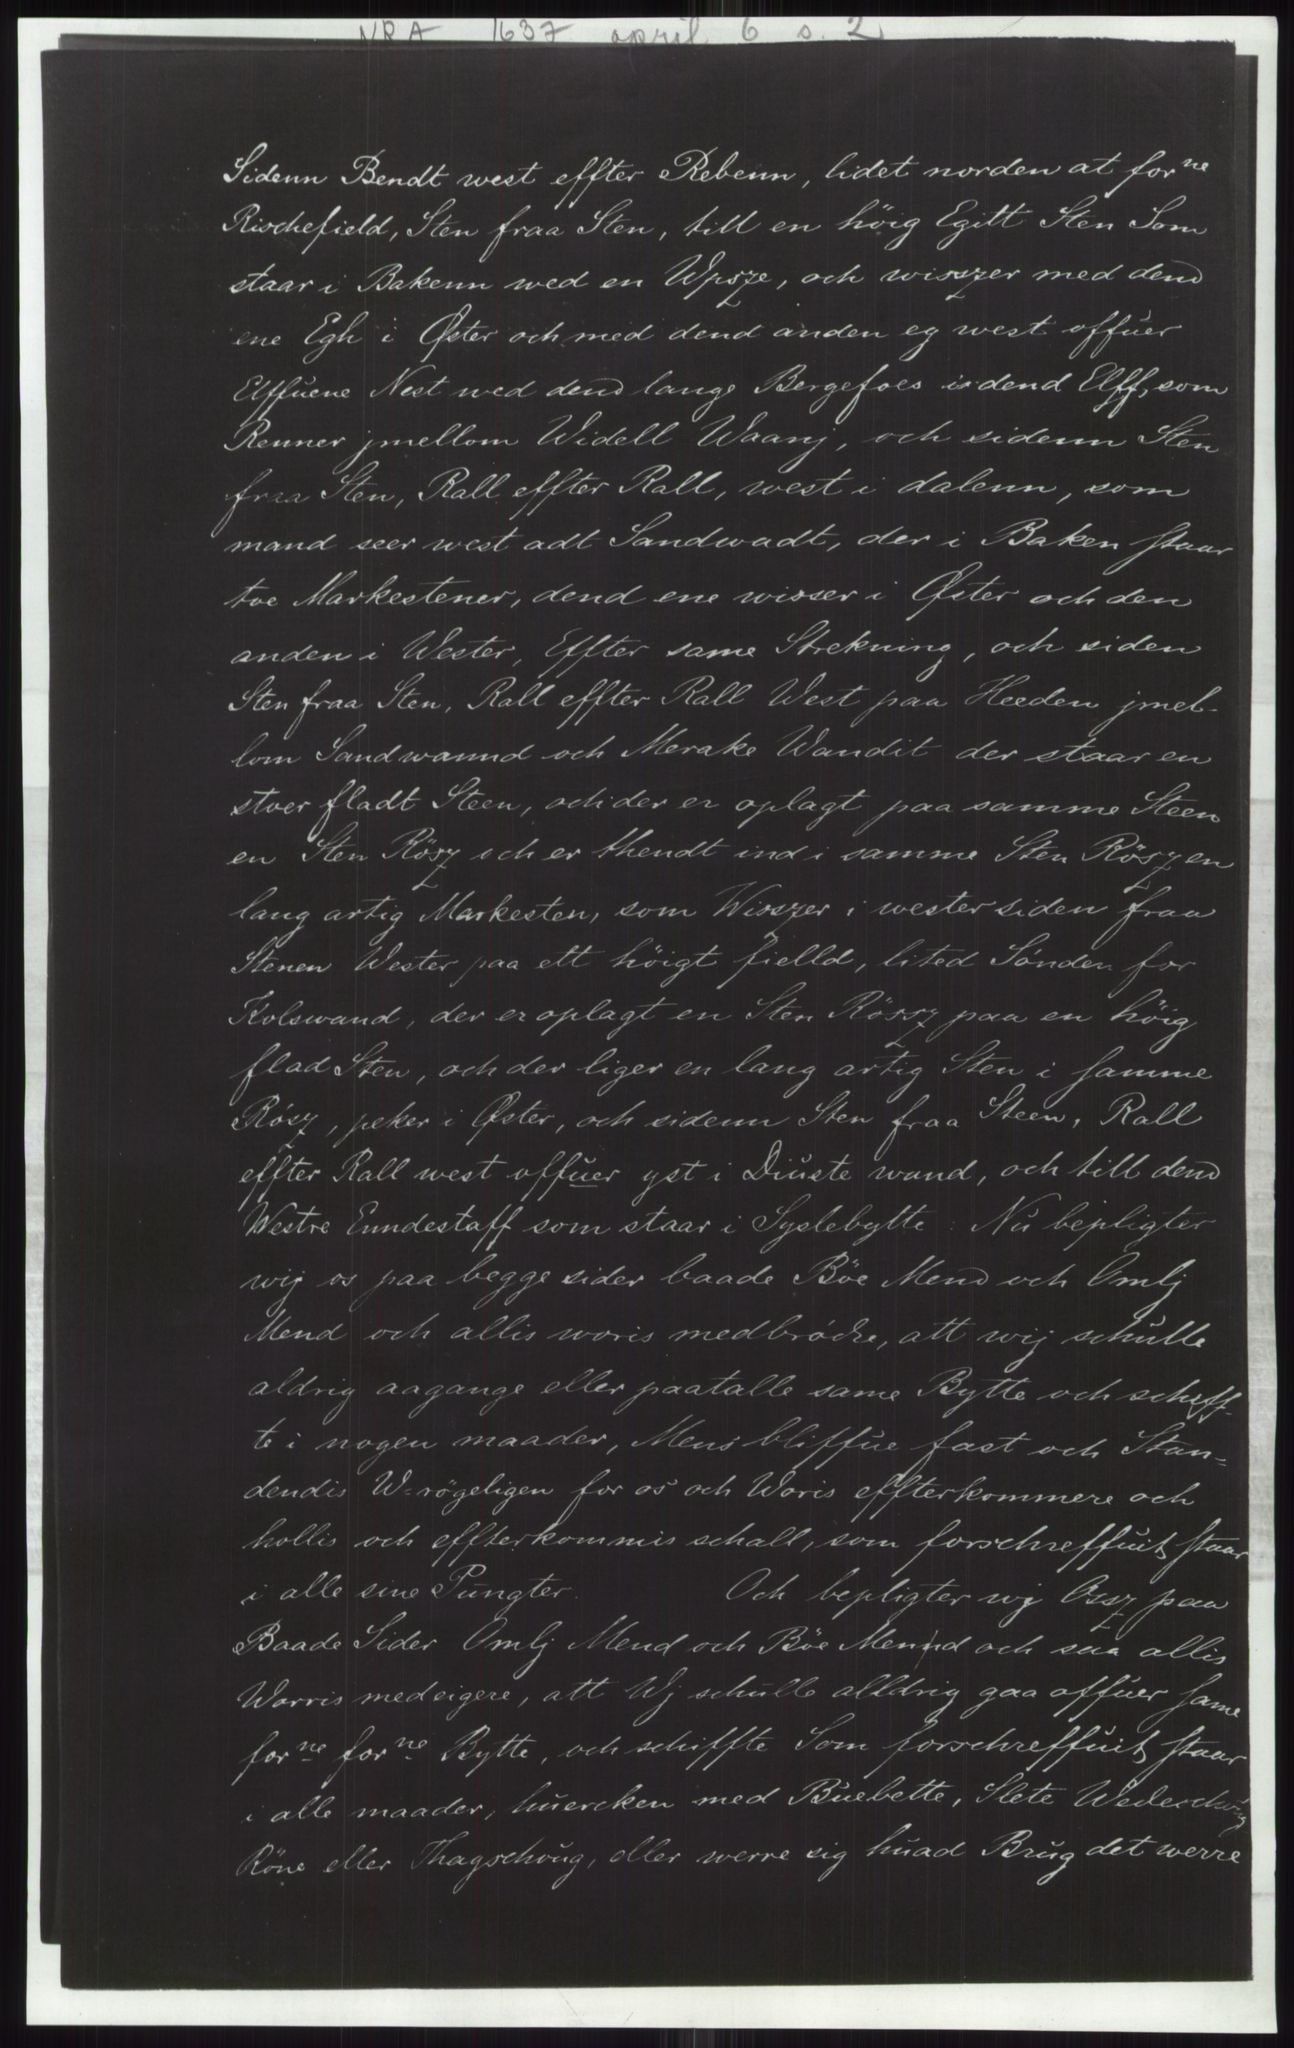 NRA 1637 april 6 s. 2
Sidenn Bendt west effter Rebenn, lidet norden at forne
Rischefield, Sten fraa Sten, till en höig Egitt Sten Som
staar i Bakenn wed en Wpsze, och wisszer med dend
ene Egh i Øster och med dend anden eg west offuer
Elffuene Nest wed dend lange Bergefoes i dend Elff, som
Renner jmellom Widell Waanj, och sidenn Sten
fraa Sten, Rall effter Rall, west i dalenn, som
mand seer west adt Sandwadt, der i Baken staar
toe Markestener, dend ene wisser i Øster och den
anden i Wester, Effter same Strekning, och siden
Sten fraa Sten, Rall effter Rall West paa Heeden jmel-
lom Sandwannd och Merake Wandit der staar en
stoer fladt Steen, och der er oplagt paa samme Steen
en Sten Rösz och er thendt ind i samme Sten Rösz en
lang artig Markesten, som Wisszer i wester siden fraa
Stenen Wester paa ett höigt fielld, lited Sønden for
Kolswand, der er oplagt en Sten Rössz paa en höig
flad Sten, och der liger en lang artig Sten i samme
Rösz, peker i Øster, och sidenn Sten fraa Steen, Rall
effter Rall west offuer yst i Diuste wand, och till dend
Westre Enndestaff som staar i Syslebytte: Nu bepligter
wij os paa begge sider baade Böe Mend och Omlj
Mend och allis woris medbrödre, att wij schulle
aldrig aagange eller paatalle same Bytte och schiff-
te i nogen maader, Mens bliffue fast och Stan-
dendis W-rögeligen for os och Woris effterkommere och
hollis och effterkommis schall, som forschreffuit staar
i alle sine Pungter. Och bepligter wij Ossz paa
Baade Sider Omlj Mend och Böe Mennd och saa allis
Worris medeigere, att Wj schulle alldrig gaa offuer same
forne forne Bytte, och schiffte Som forschreffuit staar
i alle maader, huercken med Buebette, Slete Wedeschoug
Röne eller Thagschoug, eller werre sig huad Brug det werre